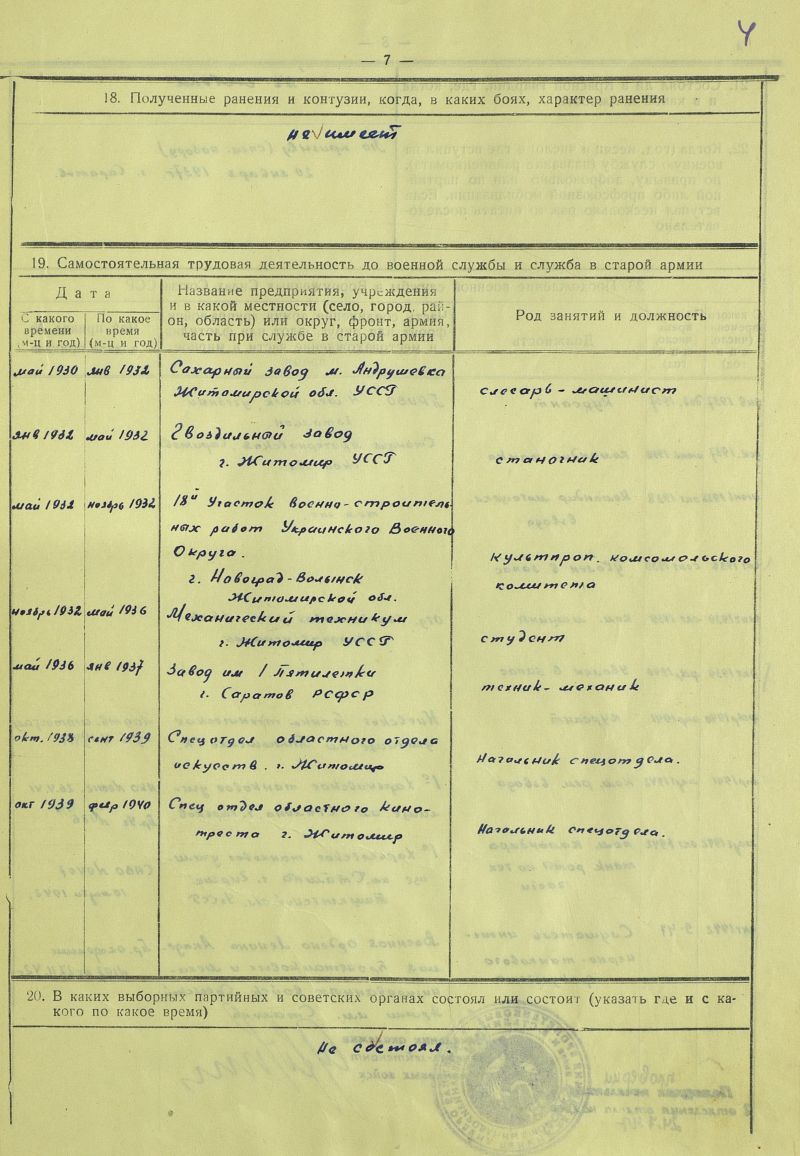 4
— 7 —
18. Полученные ранения и контузии, когда, в каких боях, характер ранения
не имеет
19. Самостоятельная трудовая деятельность до военной службы и служба в старой армии
Дата
С какого времени (м-ц и год)
По какое время (м-ц и год)
Название предприятия, учреждения
и в какой местности (село, город, рай-
он, область) или округ, фронт, армия,
часть при службе в старой армии
Род занятий и должность
май 1930 янв 1932 Сахарный завод м. Андрушевка
Житомирской обл. УССР слесарь - машинист
янв 1932 май 1932 Гвоздильный завод
г. Житомир УССР станочник
май 1932 ноябрь 1932 18й Участок военно-строитель-
ных работ Украинского Военного
Округа. Культпроп. комсомольского
г. Новоград-Волынск комитета
Житомирской обл.
ноябрь 1932 май 1936 Механический техникум
г. Житомир УССР студент
май 1936 янв 1937 Завод им 1 Пятилетки
г. Саратов РСФСР техник-механик
окт. 1938 сент 1939 Спецотдел областного отдела
искуств. г. Житомир Начальник спецотдела.
окт 1939 фвр 1940 Спец отдел областного кино-
треста г. Житомир Начальник спецотдела.
20. В каких выборных партийных и советских органах состоял или состоит (указать где и с ка-
кого по какое время)
Не состоял.